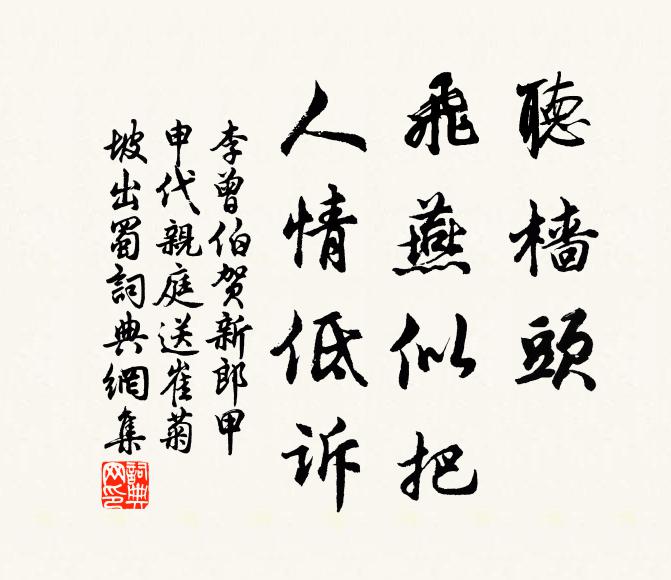 聽檣頭
飛燕似把
人情低訴
李曾伯賀新郎甲
申代親庭送崔菊
坡出蜀詞典網集
詞典网印